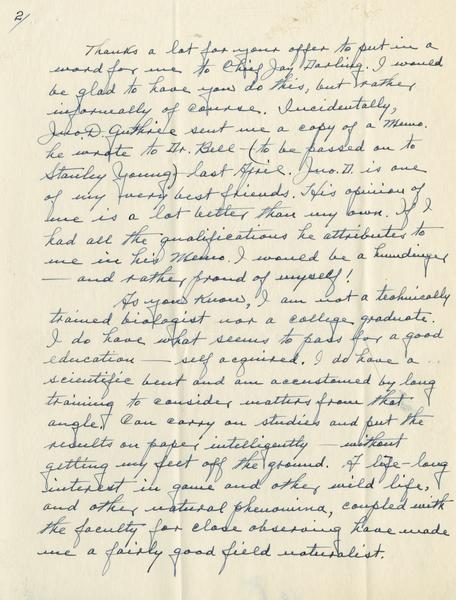 2/
Thanks a lot for your offer to put in a
word for me to Chief Jay Darling. I would
be glad to have you do this, but rather
informally of course. Incidentally,
Jno. D. Guthrie sent me a copy of a Memo.
he wrote to Dr. Bell - (to be passed on to
Stanley Young) last April. Jno. D. is one
of my very best friends. His opinion of
me is a lot better than my own. If I
had all the qualifications he attributes to
me in his Memo. I would be a humdinger
— and rather proud of myself!
As you know, I am not a technically
trained biologist nor a college graduate.
I do have what seems to pass for a good
education — self acquired. I do have a
scientific bent and am accustomed by long
training to consider matters from that
angle. Can carry on studies and put the
results on paper, intelligently — without
getting my feet off the ground. A life-long
interest in game and other wild life,
and other natural phenomina, coupled with
the faculty for close observing have made
me a fairly good field naturalist.